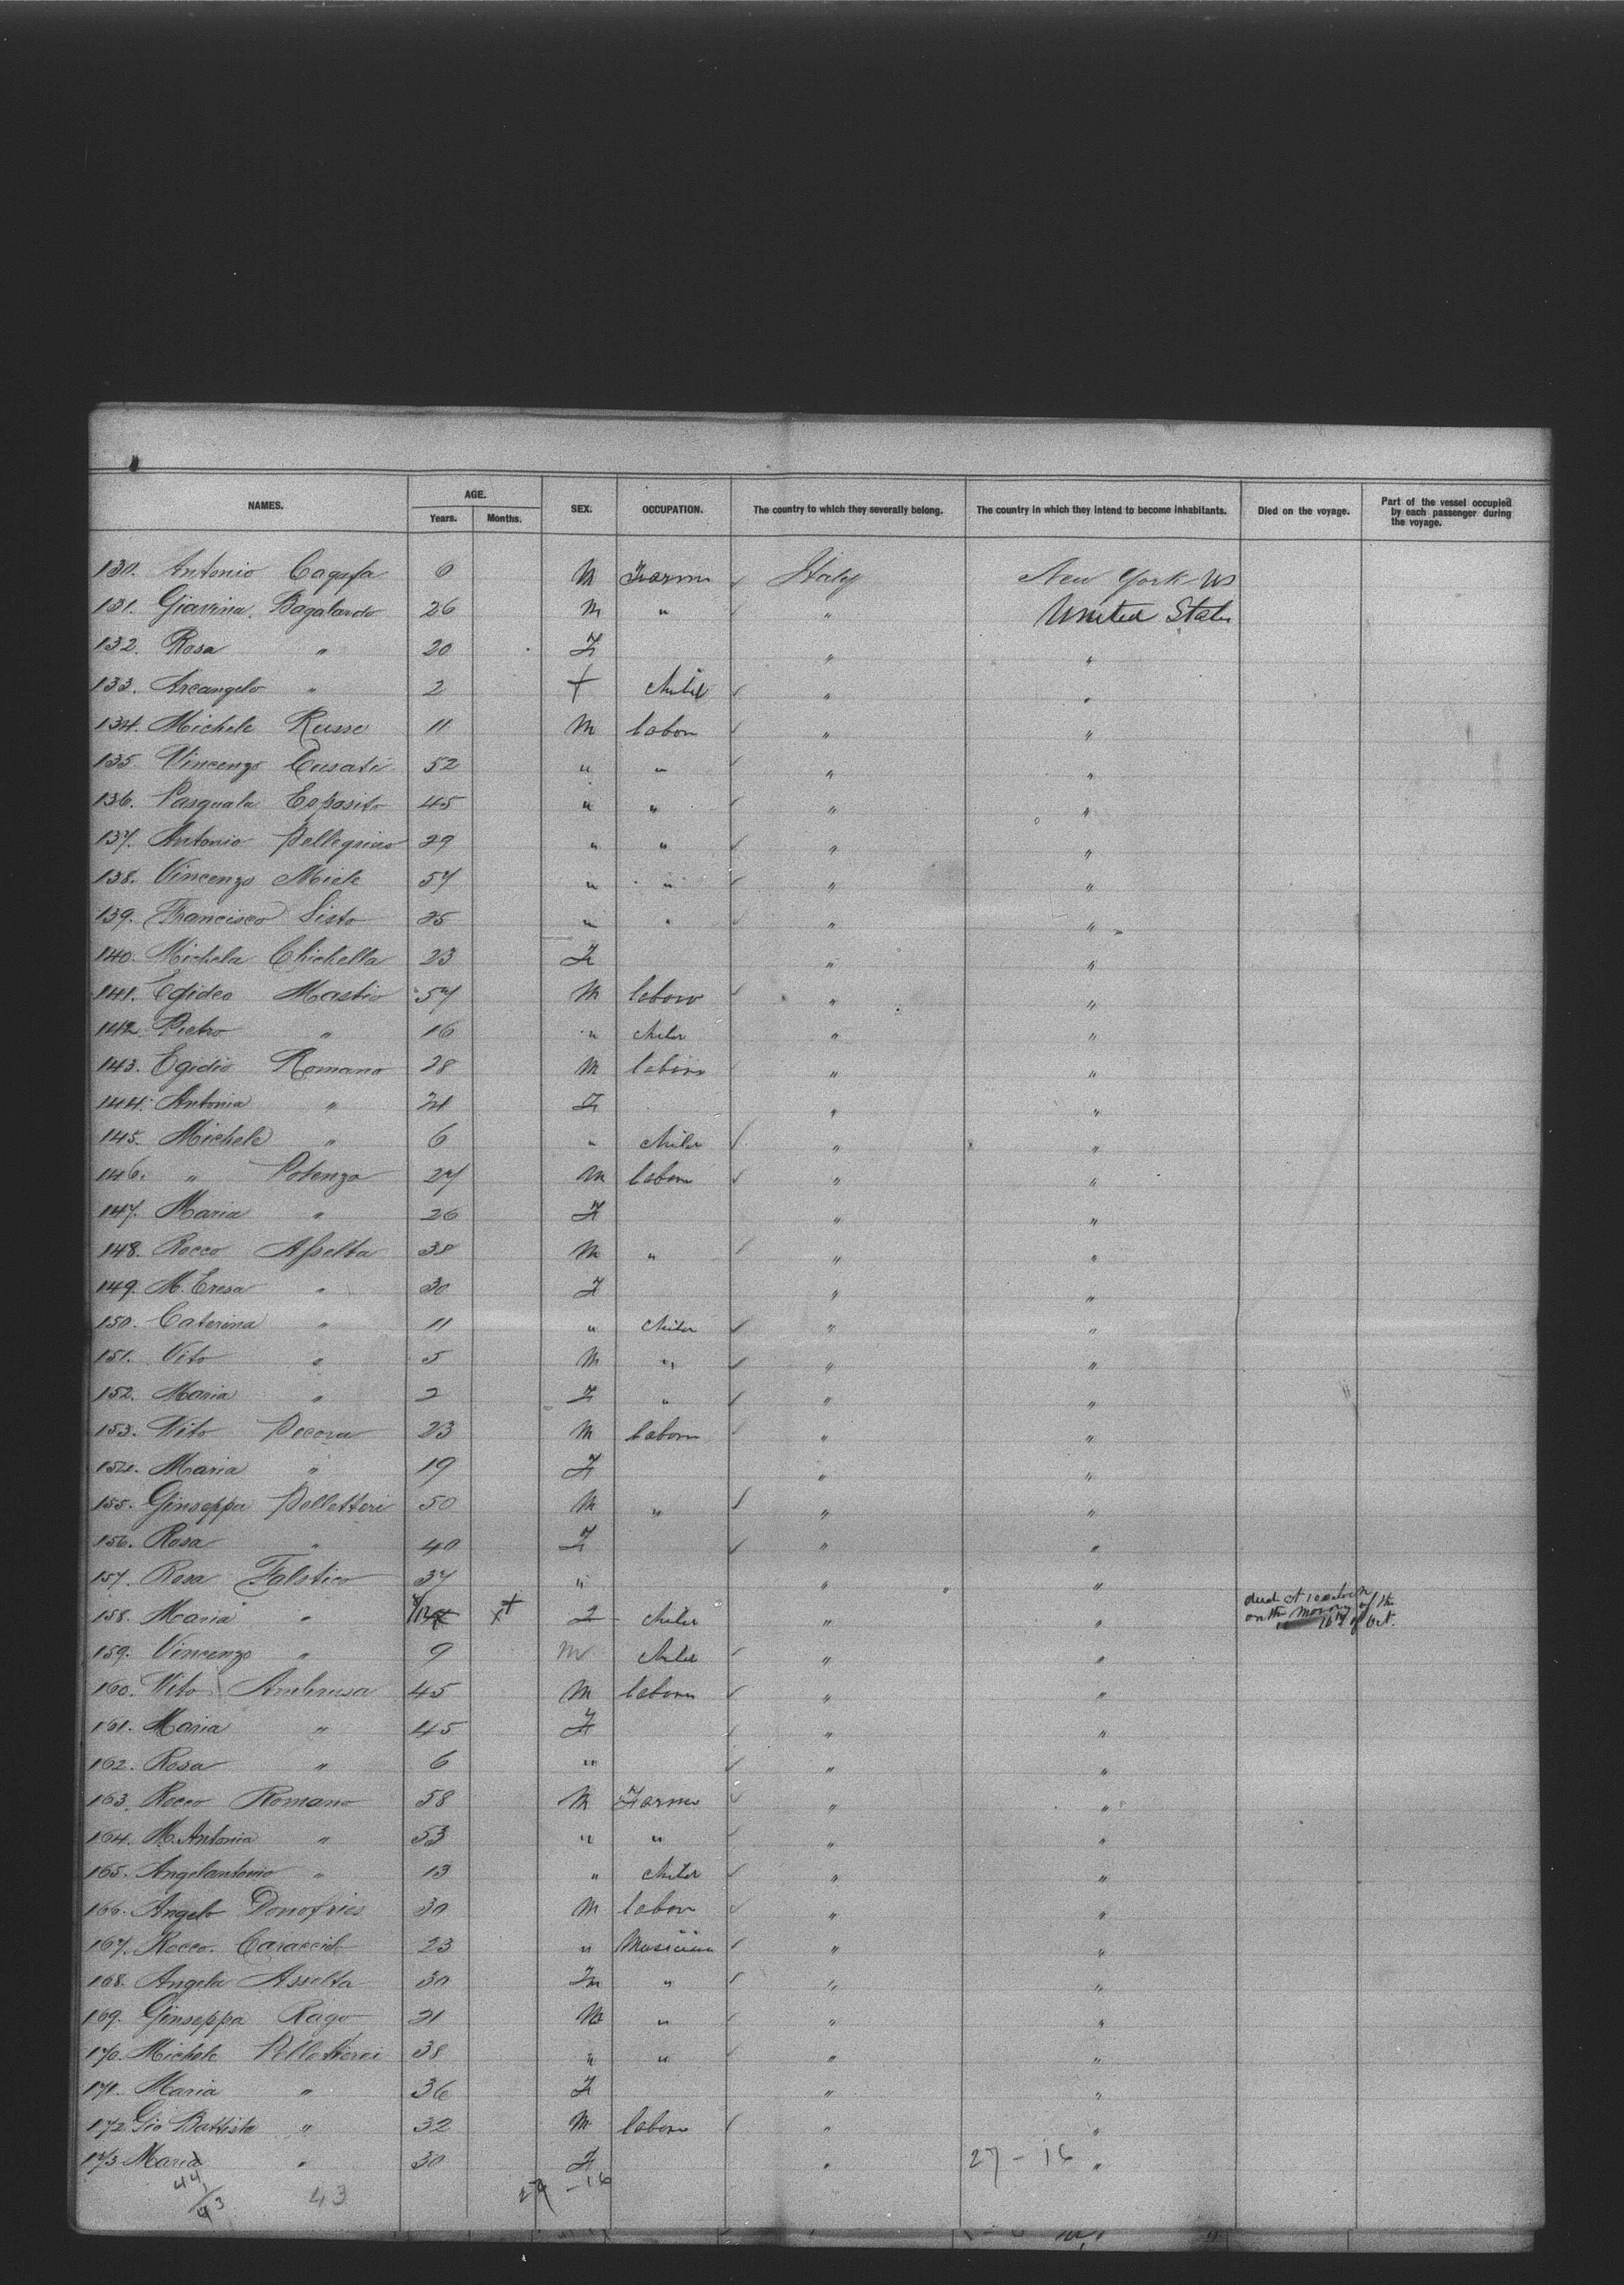 NAMES. AGE. SEX. OCCUPATION. The country to which they severally belong. The country in which they intend to become inhabitants. Died on the voyage. Part of the vessel occupied by each passenger during the voyage.
Years. Months.
130. Antonio 6 M Farm ✓ Italy New York US
131. Giavina Bagalardo 26 M " ✓ " United States
132. Rosa " 20 F " "
133. Arcangelo " 2 f Child ✓ " "
134. Michele Russo 11 M labor ✓ " "
135. Vincenzo Cusati 52 " " ✓ " "
136. Pasquala Esposito 45 " " ✓ " "
137. Antonio Pellegrino 29 " " ✓ " "
138. Vincenzo Miele 57 " " ✓ " "
139. Francisco Sisto 25 " " ✓ " "
140. Michela Chichella 23 F " "
141. Egideo Mastio 57 M labor ✓ " "
142. Pietro " 16 " Child " "
143. Egidio Romano 28 M labor " "
144. Antonia " F " "
145. Michele " 6 " Child ✓ " "
146. " Potenza 27 M labor ✓ " "
147. Maria " 26 F " "
148. Rocco Asselta 38 M " ✓ " "
149. M. Eresa " 30 F " "
150. Caterina " 11 " Child ✓ " "
151. Vito " 5 M " ✓ " "
152. Maria " 2 F " ✓ " "
153. Vito Pecora 23 M labor ✓ " "
154. Maria " 19 F " "
155. Giuseppa Pellettieri 50 M " ✓ " "
156. Rosa " 40 F ✓ " "
157. Rosa Falstico 37 " " "
158. Maria " F Child " " died at 10 oclock on the morning of the 16th of Oct.
159. Vincenzo " 9 M Child ✓ " "
160. Vito 45 M labor ✓ " "
161. Maria " 45 F ✓ " "
162. Rosa " 6 " ✓ " "
163. Rocco Romano 58 M Farm ✓ " "
164. M. Antonia " 53 " " ✓ " "
165. Angelantonio " 13 " Child ✓ " "
166. Angelo Donofrios 30 M labor ✓ " "
167. Rocco Caracciolo 23 " Musician ✓ " "
168. Angela Asselta 30 Fm " ✓ " "
169. Giuseppa Rago 21 M " ✓ " "
170. Michele Pellettieri 38 " " ✓ " "
171. Maria " 36 F " "
172. Gio Battista " 32 M labor ✓ " "
173. Maria " 30 F " 27 - 16 "
44/43 43 27 - 16